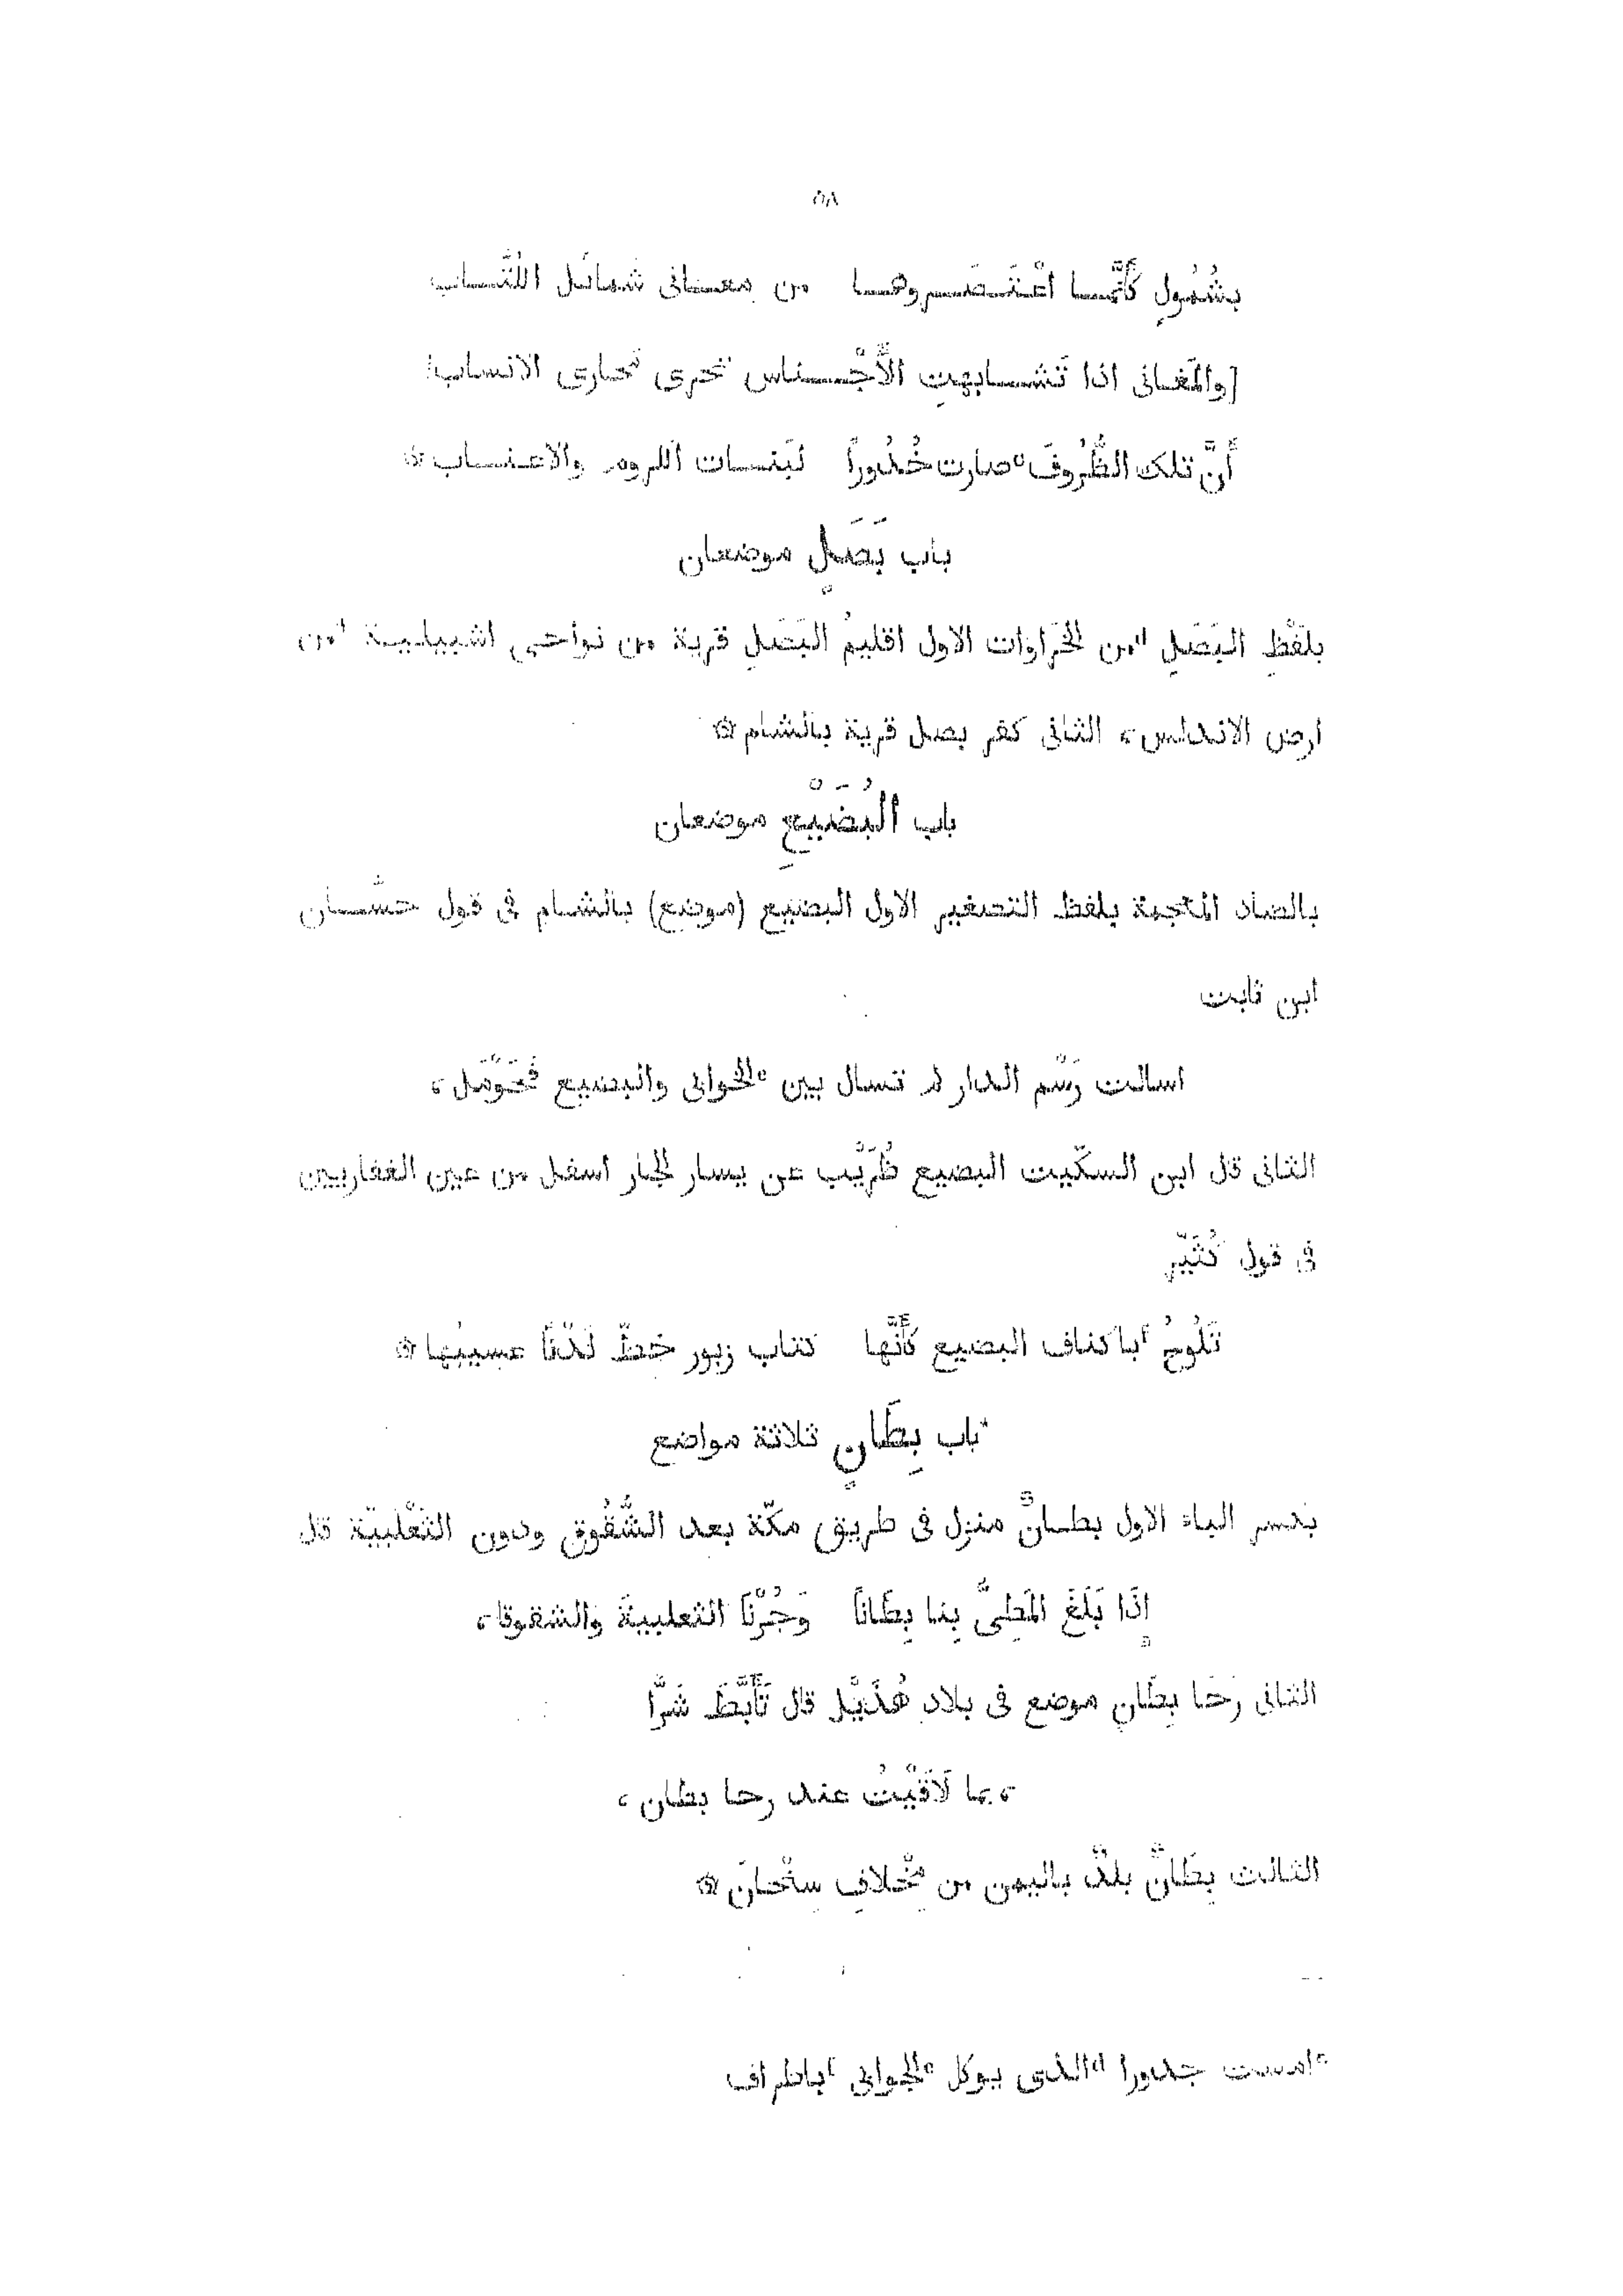 ٥٨
بشُمُولٍ كَأَنَّمـا اعْتَـصَـروهـا من معـانى شمائل الكُتَّـاب
[والمَغـانى اذا تَشـابهتِ الأَجْـناس تجرى مجارى الانساب]
أَنَّ تلك الظُّرُوفَ c صارت خُدُورًا لبَنـات الكروم والاعـنـاب ۞
باب بَصَلٍ موضعان
بلفْظِ البَصَلِ d من الخَرّاوات الاول اقليمُ البَصَلِ قرية من نواحى اشبيلـيـة من
ارض الاندلس، الثانى كفر بصل قرية بالشام ۞
باب البُضَيْعِ موضعان
بالضاد المعجمة بلفظ التصغير الاول البضيع (موضع) بالشـام فى قول حسّـان
ابن ثابت
اسالت رَسْم الدار لم تسال بين e الخوابى والبضيع فحَوْمَل،
الثانى قال ابن السكّيت البضيع ظُرَيْب عن يسار الجار اسفل من عين الغفاريين
فى قول كُثَيّر
تَلُوحُ f باكناف البضيع كَأَنَّها كتاب زبور خطَّ لَدْنًا عسيبُها ۞
باب بِطَانٍ ثلاثة مواضع
بكسر الباء الاول بطـانٌ منزل فى طريق مكّة بعد الشُّقُوق ودون الثَعْلبيّة قال
إذَا بَلَغَ المَطِىُّ بِنا بِطَانًا وَجُزْنَا الثعلبيةَ والشقوقا،
الثانى رَحَا بِطَانٍ موضع فى بلاد هُذَيْلٍ قال تَأَبَّطَ شَرًّا
، بما لَاقَيْتُ عند رحا بطان ،
الثالث بِطَانٌ بلدٌ باليمن من مِخْلافِ سِنْحانَ ۞
c امست جدورا d الذى يوكل e الجوابى f باطراف